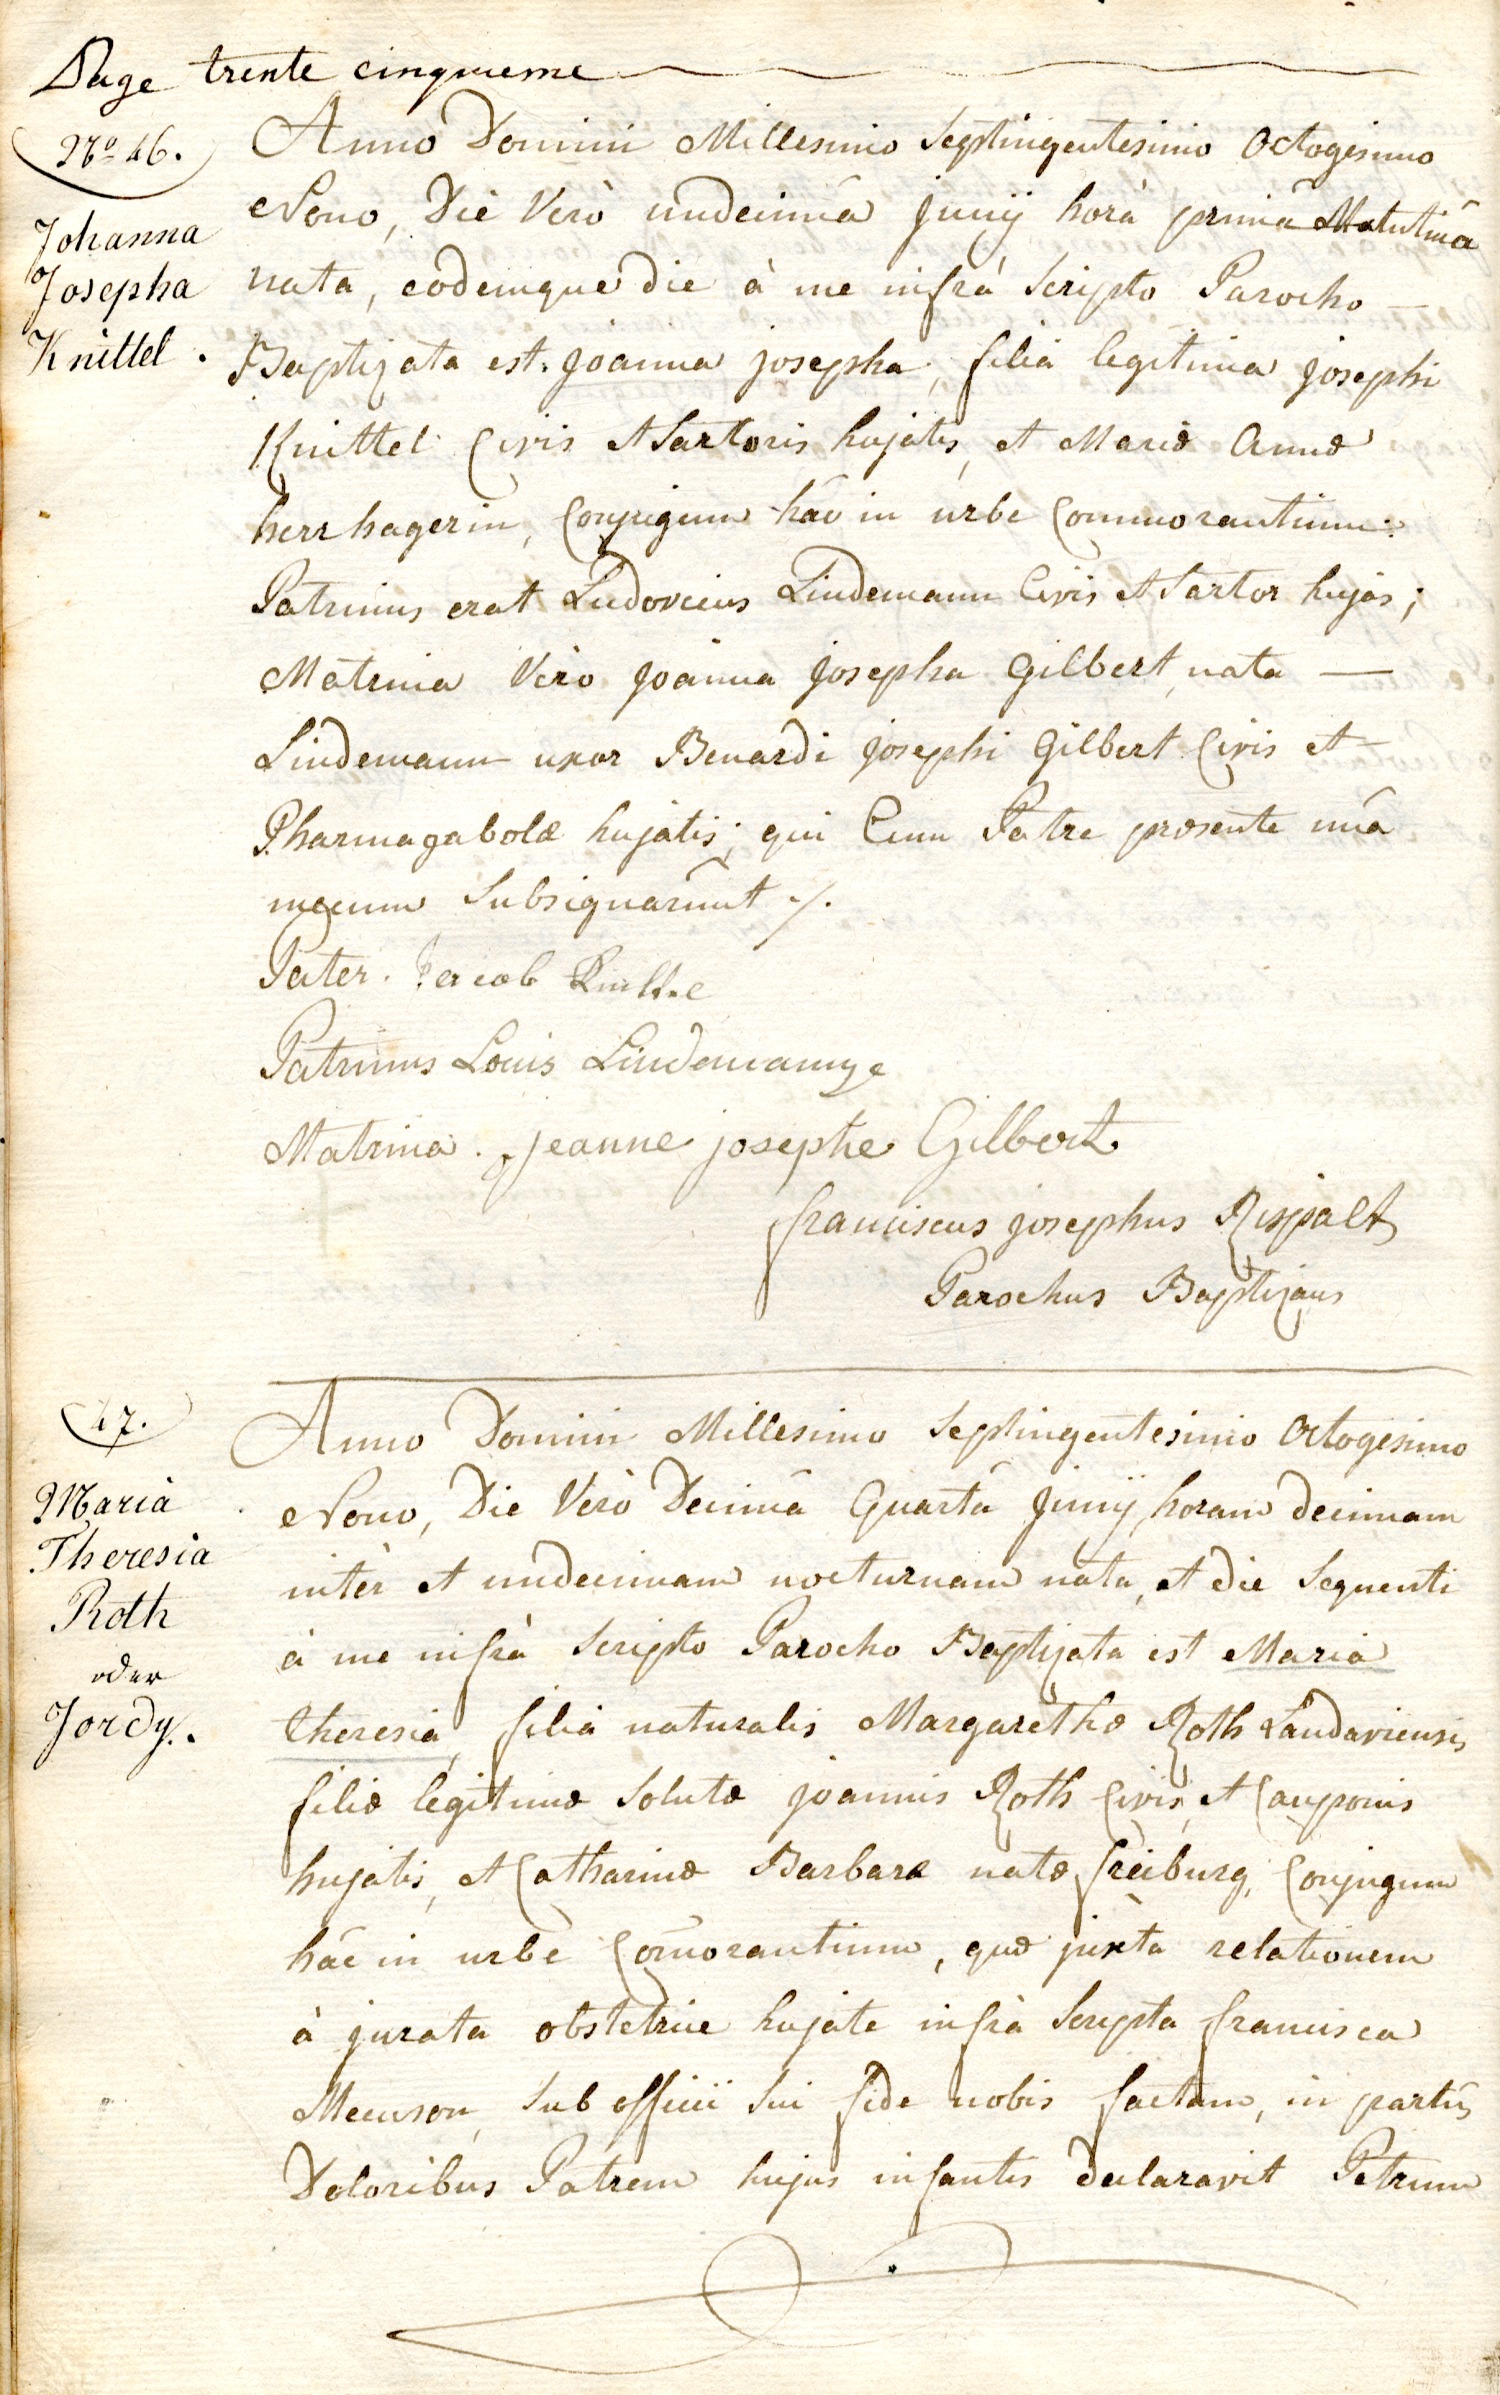 Page trente cinquieme
No 46.
Johanna
Josepha
Knittel.
Anno Domini Millesimo Septingentesimo Octogesimo
Nono, Die Verò undecimâ Junij horâ primâ Matutinâ
nata, eodemque die à me infrà Scripto Parocho —
Baptizata est. Joanna Josepha, filia legitima Josephi
Knittel Civis et Sartoris hujatis, et Mariæ Annæ
herrhagerin, Conjugum hâc in urbe Commorantium:
Patrinus erat Ludovicus Lindemann Civis et Sartor hujas;
Matrina Verò Joanna Josepha Gilbert, nata —
Lindemann uxor Benardi Josephi Gilbert Civis et
Pharmagabolæ hujatis; qui Cum Patre præsente unâ
mecum Subsignarunt ./.
Pater. Jacob
Patrinus Louis Lindemann
Matrina. Jeanne josephe Gilbert
franciscus josephus Rispalt
Parochus Baptizans
47.
Maria
Theresia
Roth
oder
Jordy.
Anno Domini Millesimo Septingentesimo Octogesimo
Nono, Die Verò Decimâ Quartâ Junij, horam decimam
intèr et undecimam nocturnam nata, et die Sequenti
à me infrà Scripto Parocho Baptizata est Maria
theresia, filia naturalis Margarethæ Roth Landaviensis
filiæ legitimæ Solutæ Joannis Roth Civis, et Cauponis
hujatis, et Catharinæ Barbaræ natæ freiburg, Conjugum
hâc in urbe Com̄orantium, quæ juxta relationem
à jurata obstetrice hujate infrà Scripta francisca
Meeuson, Sub officii Sui fide nobis factam, in partûs
Doloribus Patrem hujus infantis declaravit Petrum